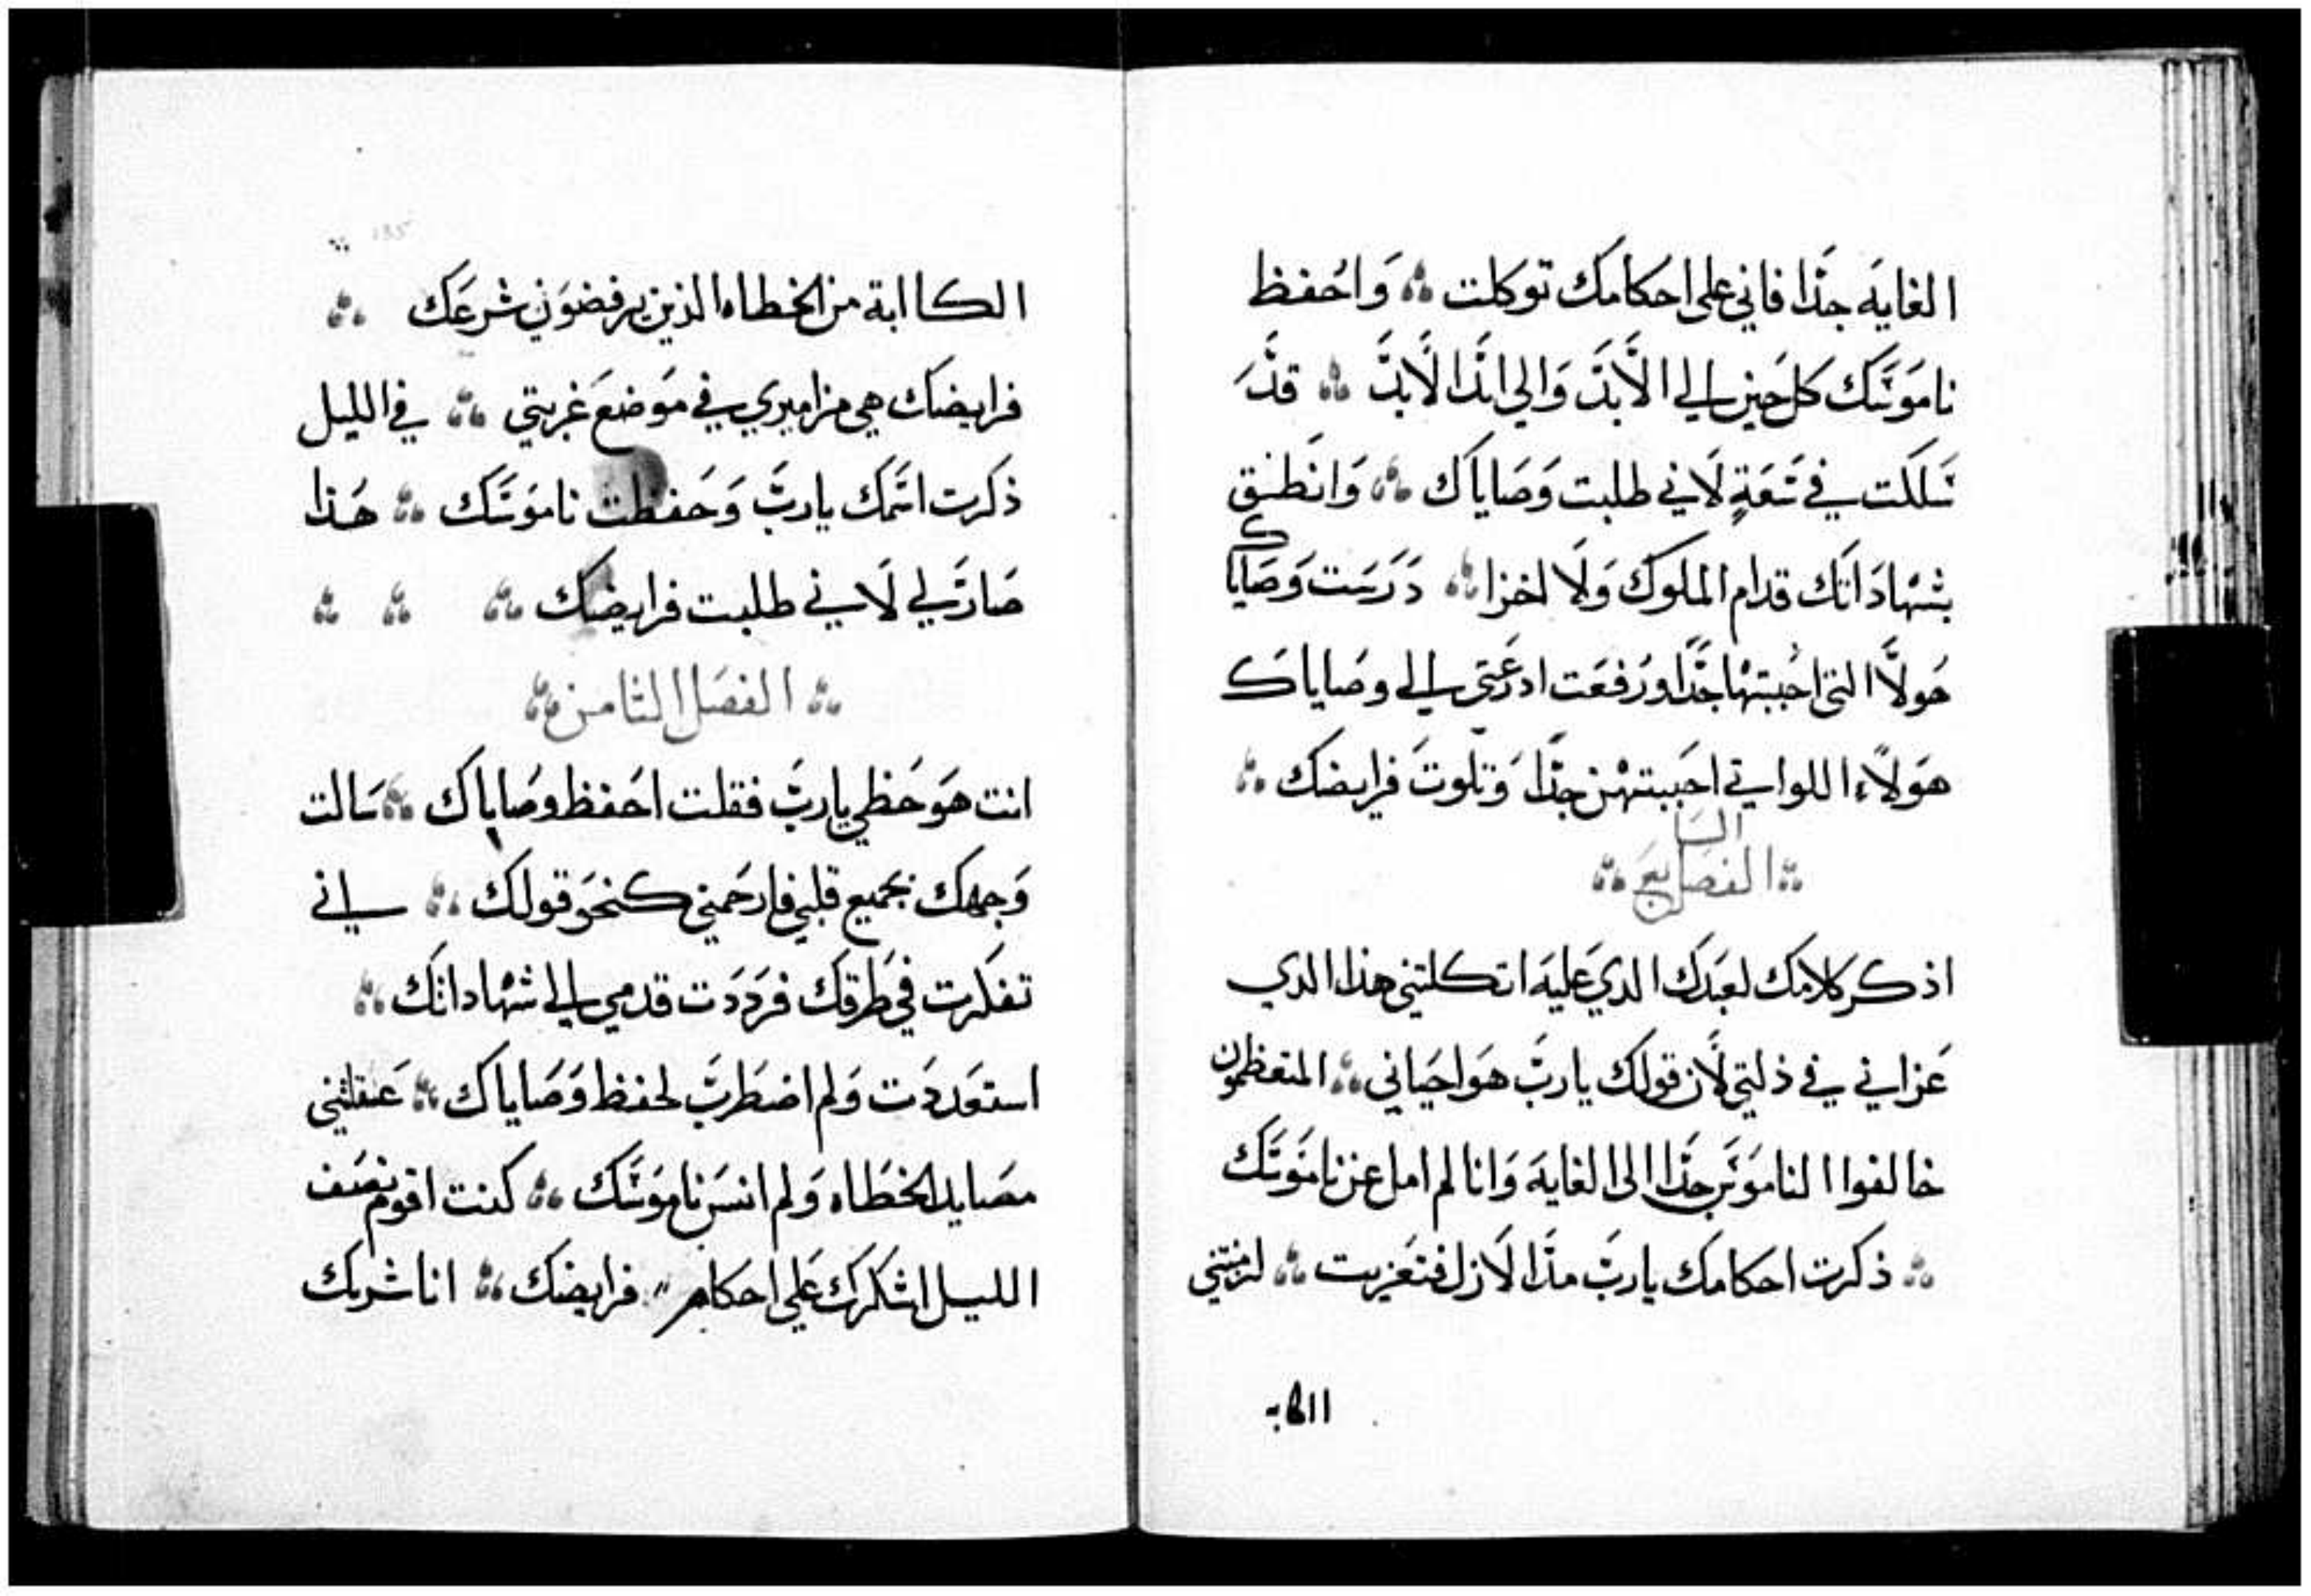 الغايه جدا فاني على احكامك توكلت ؞ واحفظ
ناموسك كل حين الي الابد والي ابد الابد ؞ قد
سلكت في سعة لاني طلبت وصاياك ؞ وانطق
بشهاداتك قدام الملوك ولا اخزا ؞ درست وصاياك
هولا التي احببتها جدا ورفعت ادرعتي الي وصاياك
هولاء اللواتي احببتهن جدا وتلوت فرايضك ؞
؞ الفصل السابع ؞
اذكر كلامك لعبدك الدي عليه اتكلتني هذا الدي
عزاني في ذلتي لان قولك يارب هو احياني ؞ المتعظمون
خالفوا الناموس جدا الى الغايه وانا لم امل عن ناموسك
؞ ذكرت احكامك يارب مذ الازل فتعزيت ؞ لزمتني
الكاابة من الخطاه الذين يرفضون شرعك ؞
فرايضك هي مزاميري في موضع غربتي ؞ في الليل
ذكرت اسمك يارب وحفظت ناموسك ؞ هذا
صار لي لاني طلبت فرايضك ؞ ؞ ؞
؞ الفصل الثامن ؞
انت هو حظي يارب فقلت احفظ وصاياك ؞ سالت
وجهك بجميع قلبي فارحمني كنحو قولك ؞ اني
تفكرت في طرقك فرددت قدمي الي شهاداتك ؞
استعددت ولم اضطرب لحفظ وصاياك ؞ عقلتني
مصايد الخطاه ولم انس ناموسك ؞ كنت اقوم نصف
الليل اشكرك على احكام فرايضك ؞ انا شريك